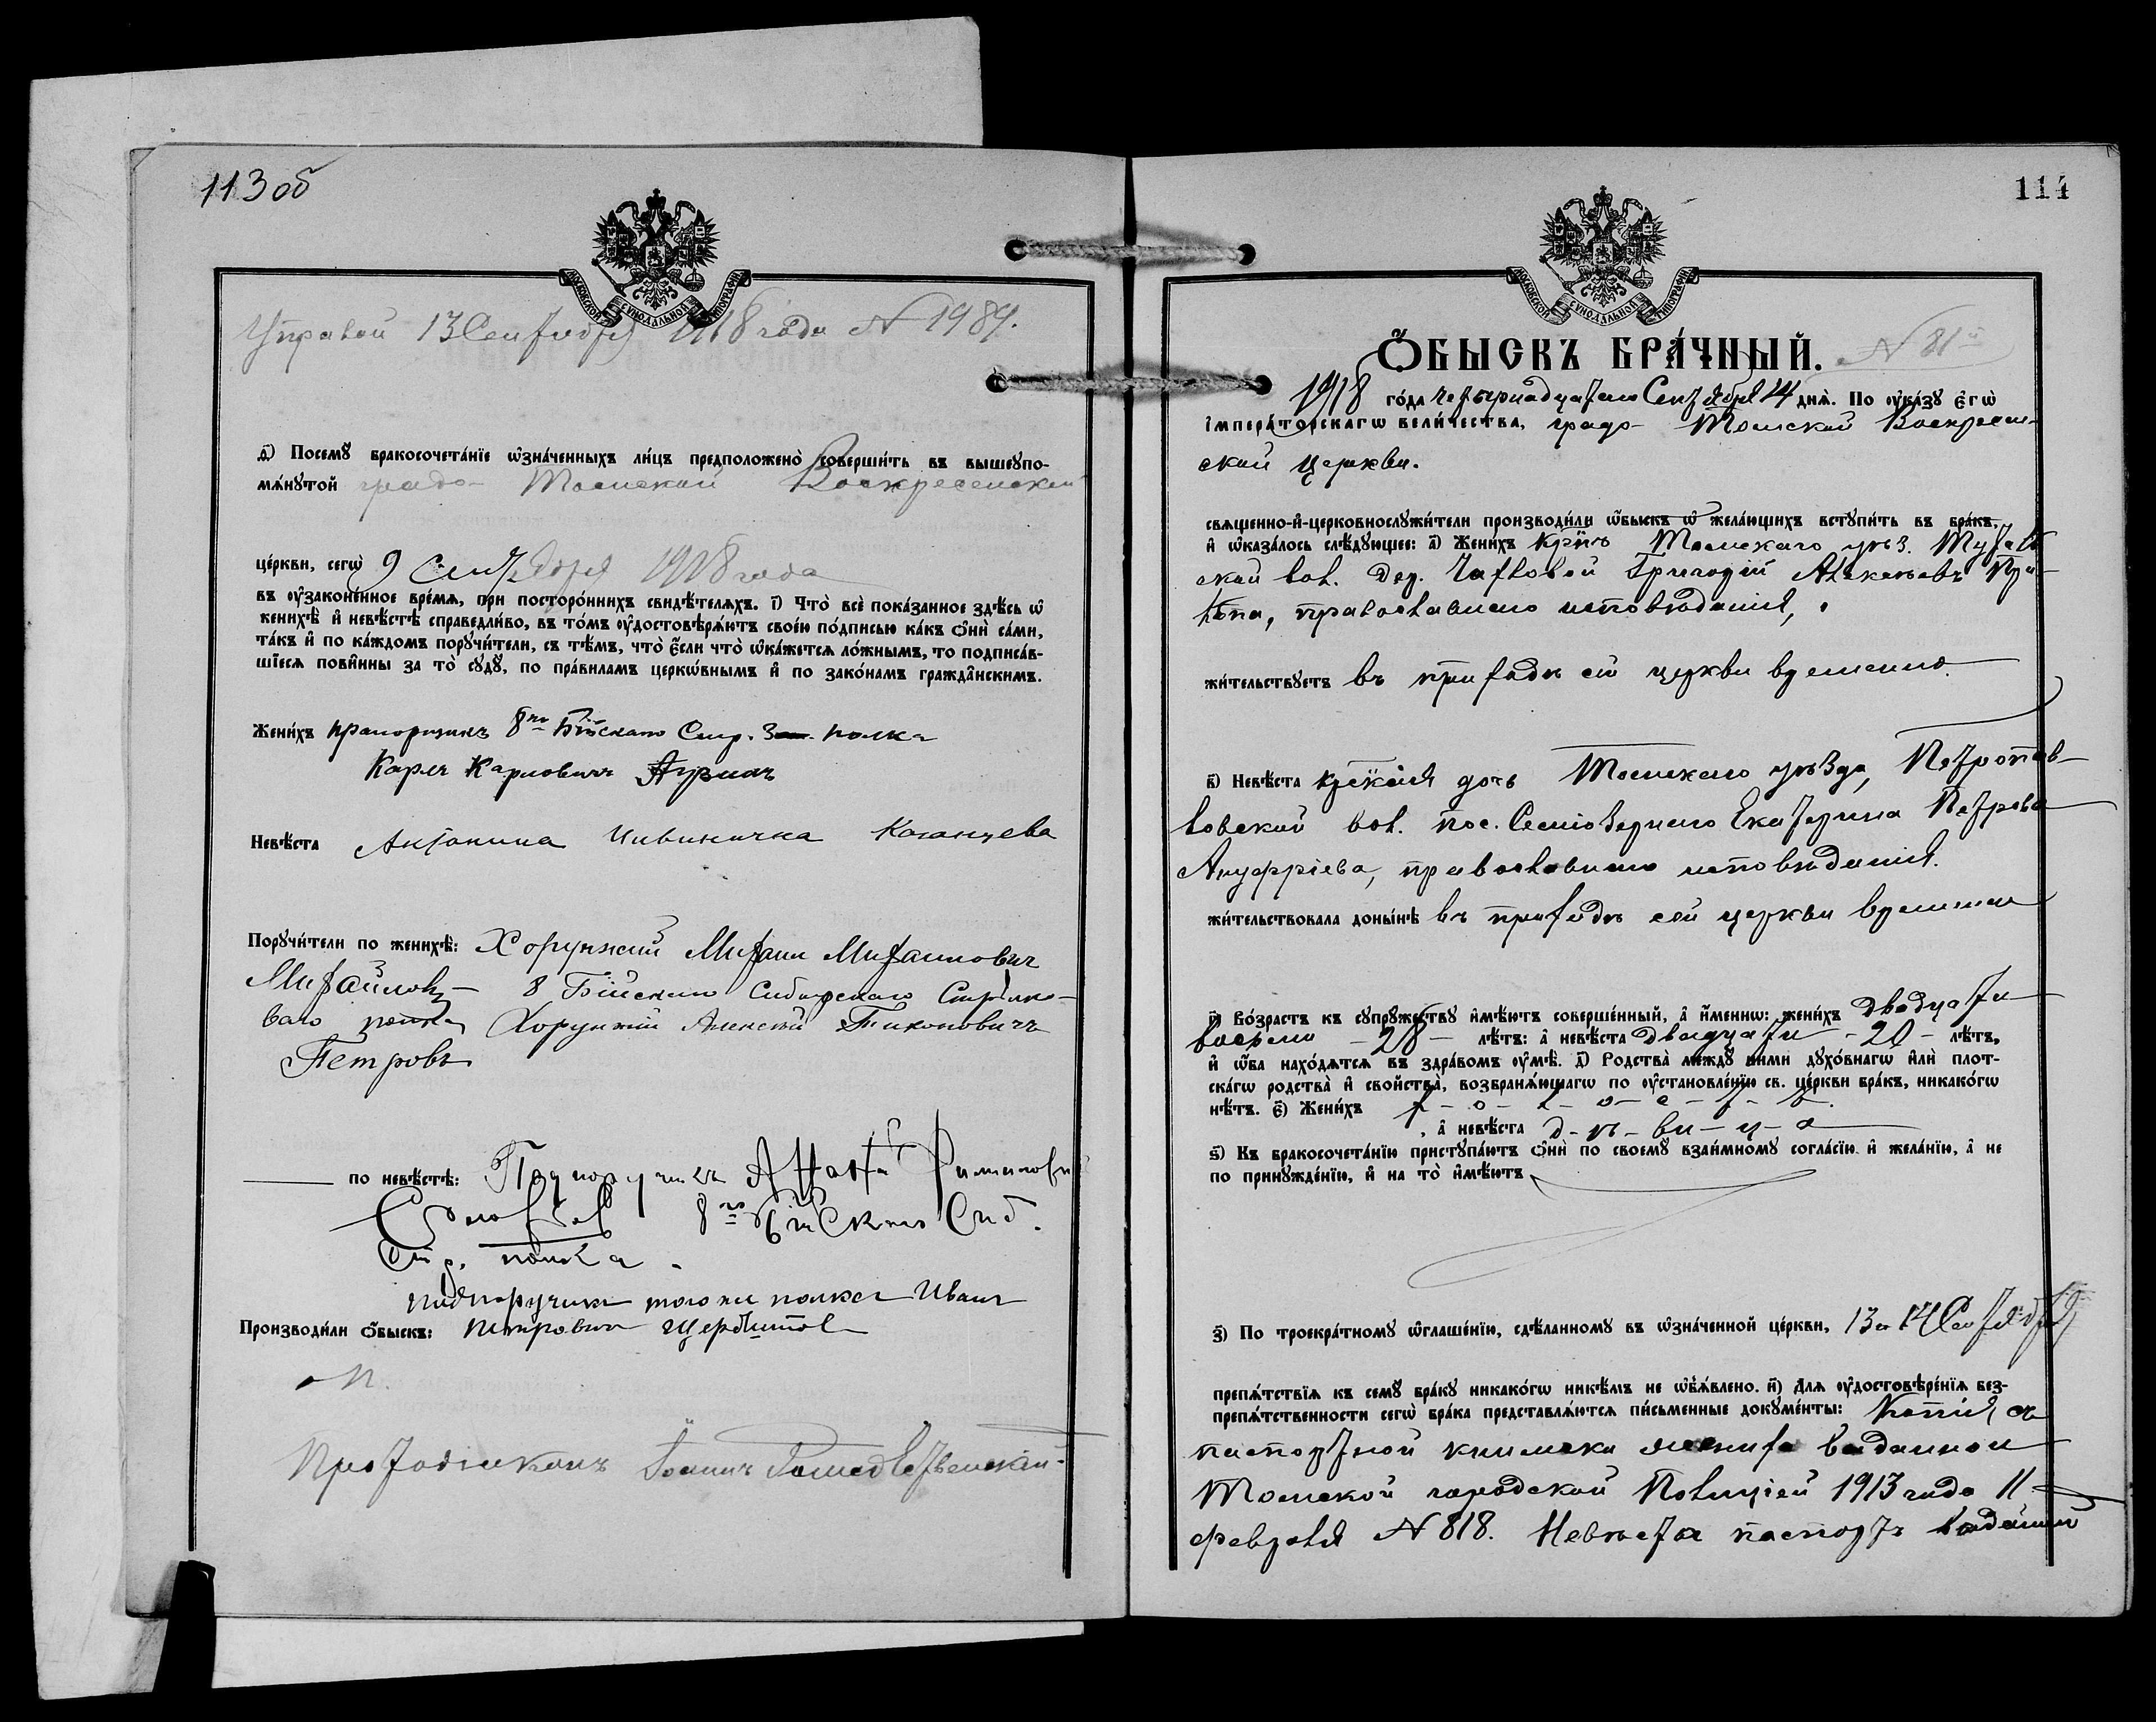 113 об
МОСКОВСКОЙ СѴНОДАЛЬНОЙ ТИПОГРАФІИ
Управой 13 Сентября 1918 года № 1989.
ѳ҃) Посемꙋ бракосочета́нїе ѡ҆зна́ченныхъ ли́цъ предположено̀ соверши́ть въ вышеꙋпо-
мѧ́нꙋтой градо- Томской Воскресенской
це́ркви, сегѡ̀ 9 Сентября 1918 года
въ ᲂу҆зако́не́нное вре́мѧ, при посторо́ннихъ свидѣ́телѧхъ. і҃) Что̀ всѐ пока́занное здѣ́сь ѡ҆
женихѣ̀ и҆ невѣ́стѣ справедли́во, въ то́мъ ᲂу҆достовѣрѧ́ютъ свое́ю по́дписью ка́къ ѻ҆нѝ са́ми,
та́къ и҆ по ка́ждомъ порꙋчи́тели, съ тѣ́мъ, что̀ є҆́сли что̀ ѡ҆ка́жетсѧ ло́жнымъ, то подписа́в-
шїесѧ пови́нны за то̀ сꙋдꙋ̀, по пра́виламъ церкѡ́внымъ и҆ по зако́намъ гражда́нскимъ.
Жени́хъ прапорщикъ 8го Бійскаго Сиб. полка
Карлъ Карловичъ
Невѣ́ста Антонина Казанцева
Порꙋчи́тели по женихѣ̀: Хорунжій Михаилъ Михаиловичъ
Михайловъ 8 Бійскаго Сибирскаго Стрѣлко-
ваго полка Хорунжій Алексѣй Тихоновичъ
Петровъ
по невѣ́стѣ: Подпоручикъ
8го Бійскаго Сиб.
Стр. полка.
подпоручикъ того же полка Иванъ
Производи́ли ѻ҆́быскъ: Петровичъ Щербининъ
Протодіаконъ Іоаннъ Рождественскій
114
МОСКОВСКОЙ СѴНОДАЛЬНОЙ ТИПОГРАФІИ
№ 81й
Ѻ҆́БЫСКЪ БРА́ЧНЫЙ.
1918 го́да четырнадцатаго Сентября 14 днѧ̀. По ᲂу҆ка́зꙋ є҆гѡ̀
і҆мпера́торскагѡ вели́чества, градо- Томской Воскресен-
ской церкви.
свѧще́нно-и҆-церковнослꙋжи́тели производи́ли ѡ҆́быскъ ѡ҆ жела́ющихъ встꙋпи́ть въ бра́къ,
и҆ ѡ҆каза́лось слѣ́дꙋющее: а҃) Жени́хъ кр̃нъ Томскаго уѣз.
ской вол. дер. Григорій
православнаго исповѣданія,
жи́тельствꙋетъ въ приходѣ сей церкви временно.
в҃) Невѣ́ста дочь Томскаго уѣзда, Петропав-
ловской вол. пос. Семіозернаго Екатерина Петрова
Ануфріева, православнаго исповѣданія.
жи́тельствовала доны́нѣ въ приходѣ сей церкви временно
г҃) Во́зрастъ къ сꙋпрꙋ́жествꙋ и҆мѣ́ютъ соверше́нный, а҆ и҆́менно: жени́хъ двадцати
восьми - 28 - лѣ́тъ: а҆ невѣ́ста двадцати - 20 - лѣ́тъ,
и҆ ѻ҆́ба нахо́дѧтсѧ въ здра́вомъ ᲂу҆мѣ̀. д҃) Родства̀ междꙋ ни́ми дꙋхо́внагѡ и҆лѝ плот-
ска́гѡ родства̀ и҆ свойства̀, возбранѧ́ющагѡ по ᲂу҆становле́нїю св. це́ркви бра́къ, никако́гѡ
нѣ́тъ. є҃) Жени́хъ х-о-л-о-с-т-ъ.
, а҆ невѣ́ста д-ѣ-ви-ц-а
ѕ҃) Къ бракосочета́нїю пристꙋпа́ютъ ѻ҆нѝ по своемꙋ̀ взаи́мномꙋ согла́сїю и҆ жела́нїю, а҆ не
по принꙋжде́нїю, и҆ на то̀ и҆мѣ́ютъ
з҃) По троекра́тномꙋ ѡ҆глаше́нїю, сдѣ́ланномꙋ въ ѡ҆зна́ченной це́ркви, 13 и 14 Сентября
препѧ́тствїѧ къ семꙋ̀ бра́кꙋ никако́гѡ никѣ́мъ не ѡ҆б̾ѧ́влено. и҃) Длѧ ᲂу҆достовѣре́нїѧ без-
препѧ́тственности сегѡ̀ бра́ка представлѧ́ютсѧ пи́сьменные докꙋме́нты: Копія съ
паспортной книжки жениха выданной
Томской городской Полиціей 1913 года 11
февраля № 818. Невѣста паспортъ выданный